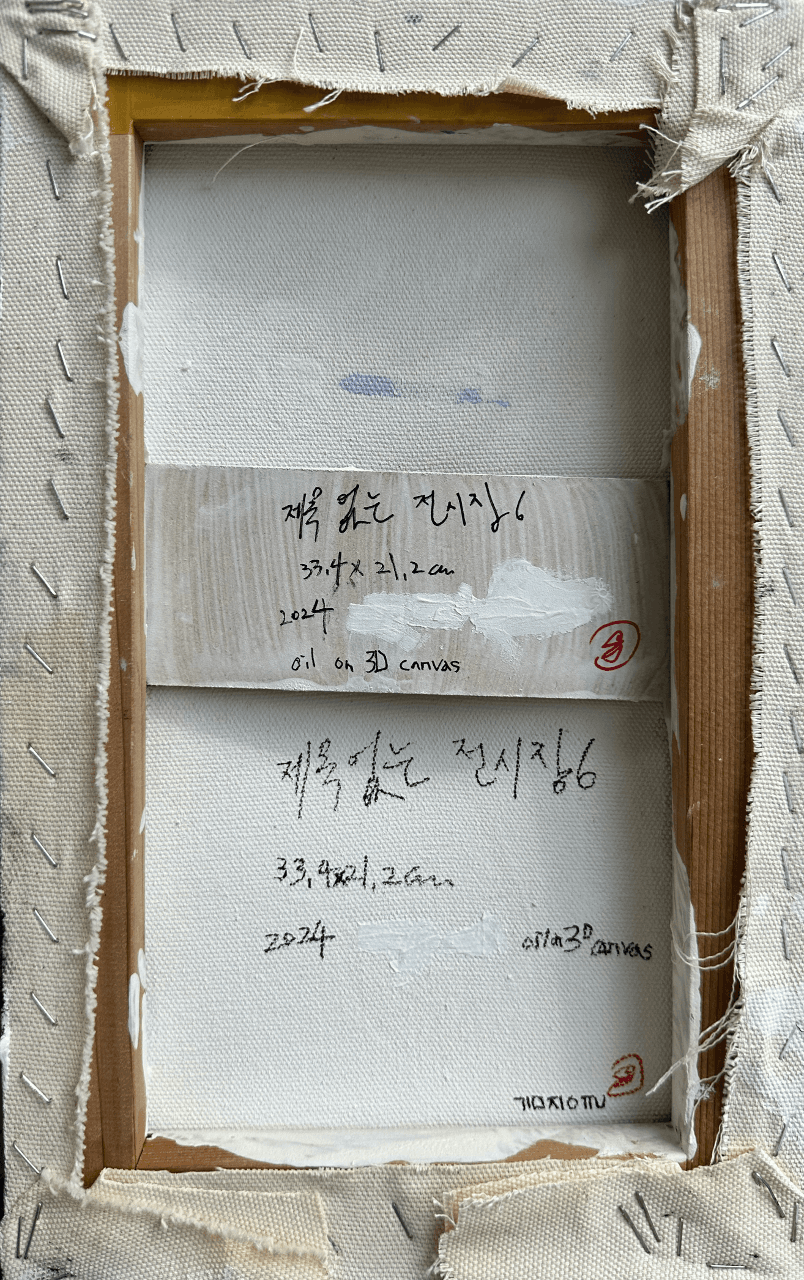 제목 없는 전시장 6
33.4 x 21.2 cm
2024
oil on 3D canvas
제목없는 전시장6
33.4x21.2cm
2024 oil on 3D canvas